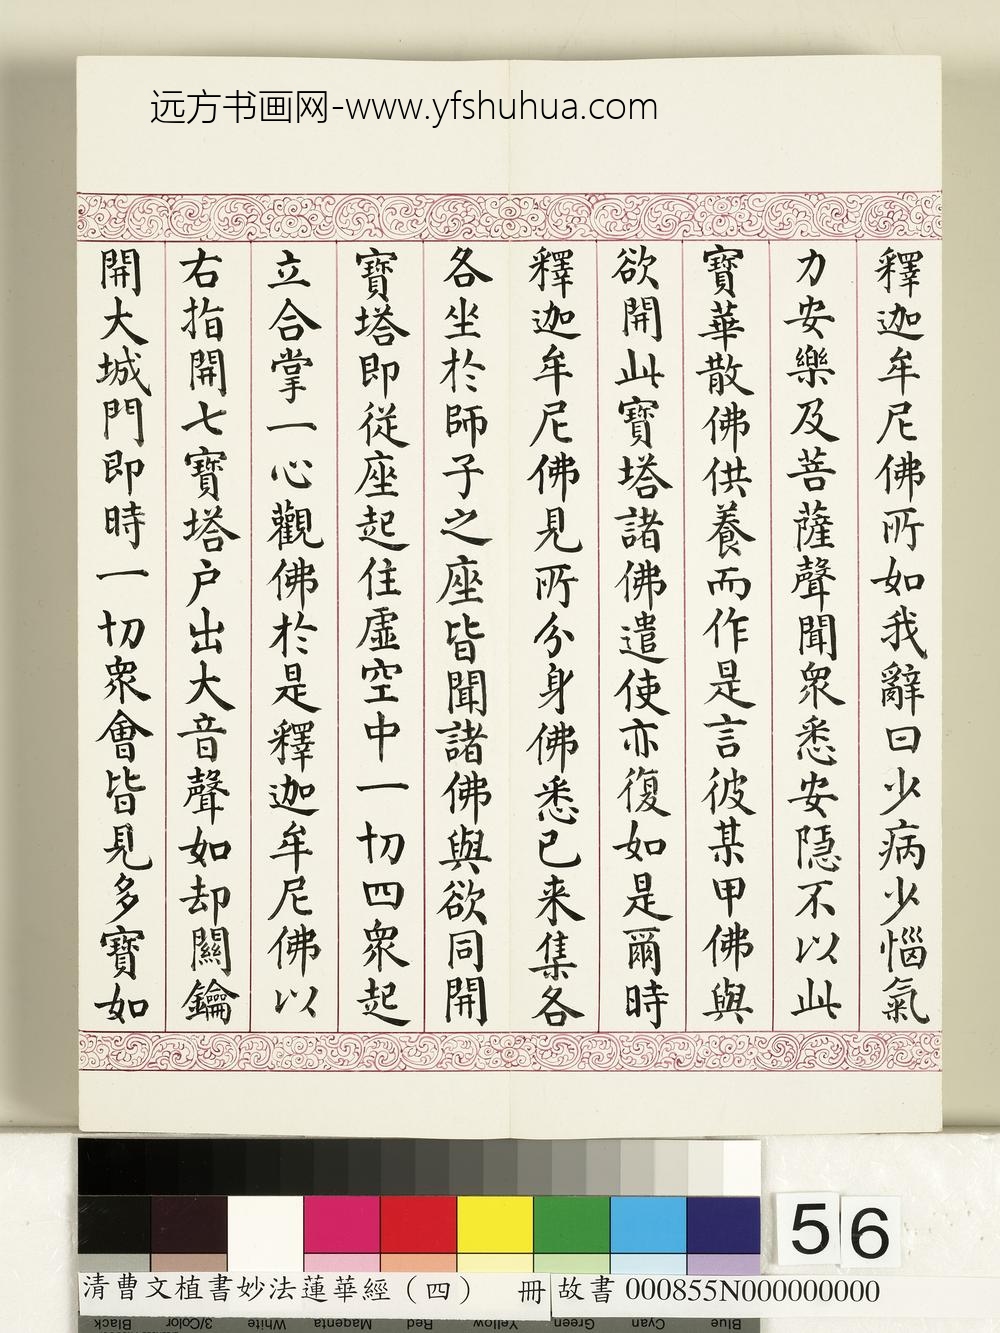 远方书画网-www.yfshuhua.com
釋迦牟尼佛所如我辭曰少病少惱氣
力安樂及菩薩聲聞衆悉安隱不以此
寶華散佛供養而作是言彼某甲佛與
欲開此寶塔諸佛遣使亦復如是爾時
釋迦牟尼佛見所分身佛悉已来集各
各坐於師子之座皆聞諸佛與欲同開
寶塔即從座起住虛空中一切四衆起
立合掌一心觀佛於是釋迦牟尼佛以
右指開七寶塔户出大音聲如却關鑰
開大城門即時一切衆會皆見多寶如
56
清曹文植書妙法蓮華經（四） 冊 故書 000855N000000000
Black 3/Color White Magenta Red Yellow Green Cyan Blue